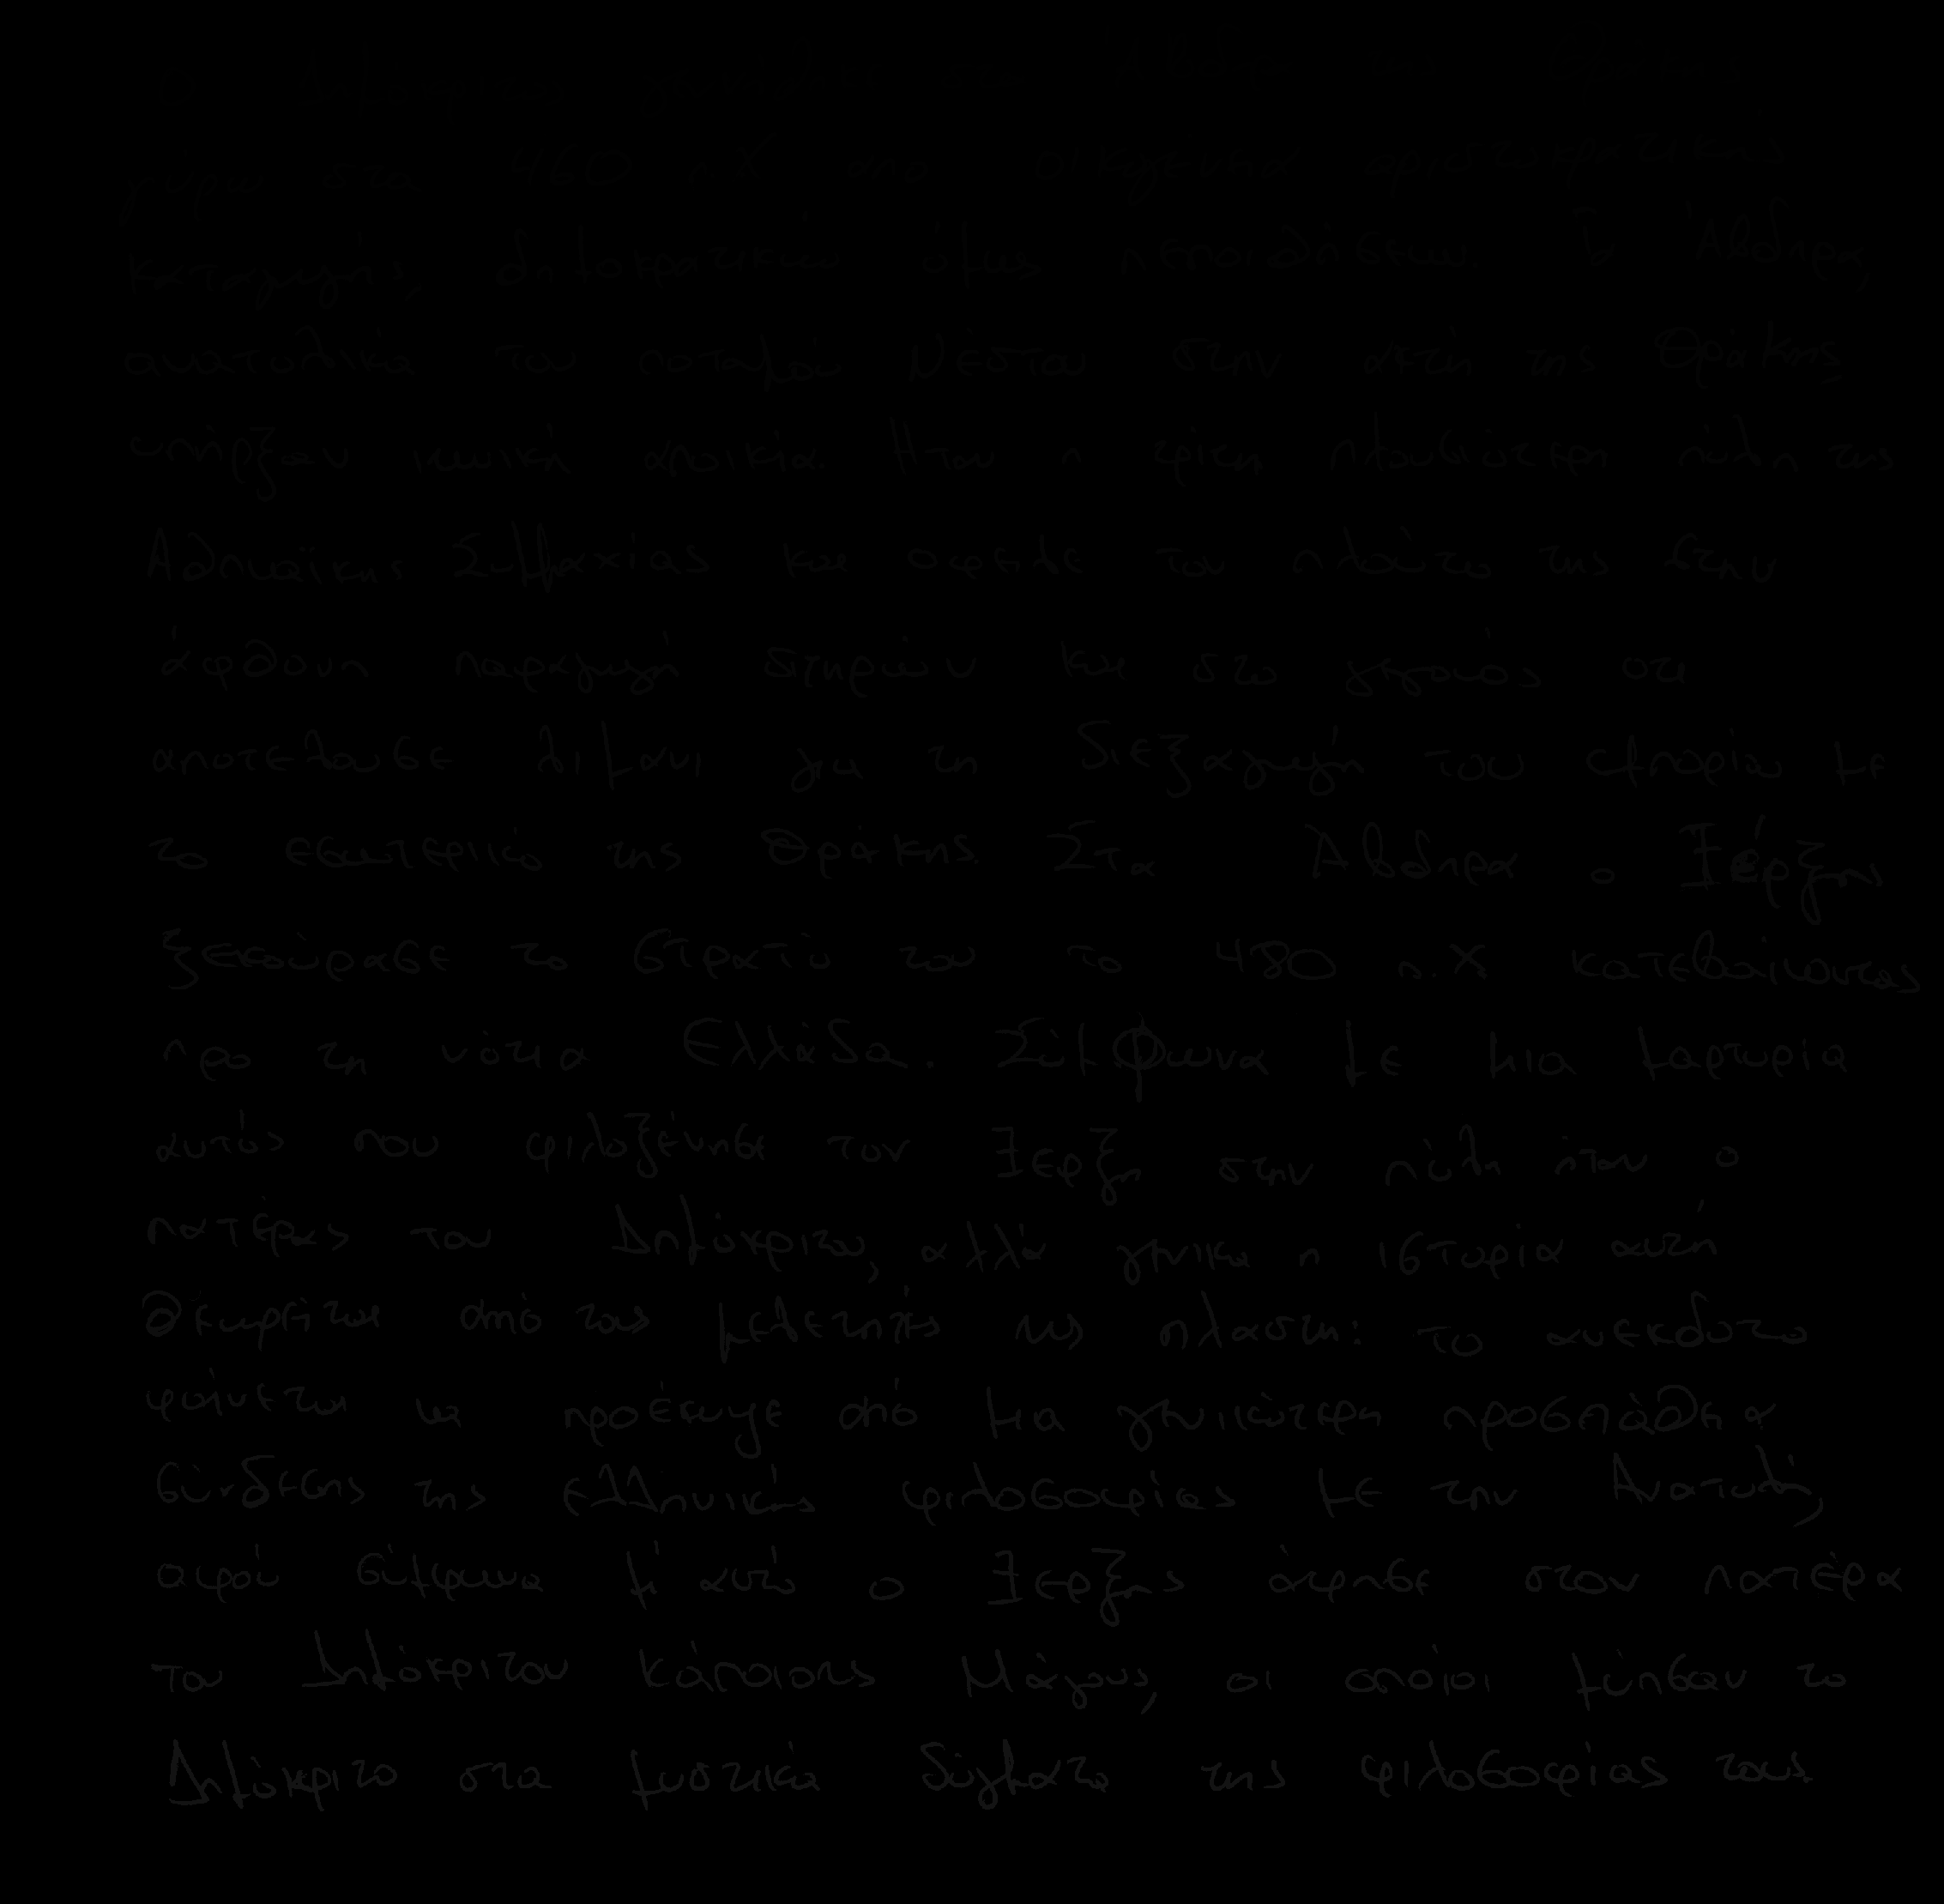 γύρω στα 460 π.Χ από οικογένεια αριστοκρατικής
καταγωγής, δημοκρατικών όμως πεποιθήσεων. Τα Άβδηρα,
ανατολικά του ποταμού Νέστου στην ακτή της Θράκης
υπήρξαν ιωνική αποικία. Ήταν η τρίτη πλουσιότερη πόλη της
Αθηναϊκής Συμμαχίας και οφειλε τον πλούτο της στην
άφθονη παραγωγή σιτηρών και στο γεγονός οτι
αποτελουσε λιμάνι για τη διεξαγωγή του εμπορίου με
το εσωτερικό της Θράκης. Στα Άβδηρα ο Ξέρξης
ξεκούρασε το στρατό του το 480 π.Χ κατεβαίνοντας
προ τη νότια Ελλάδα. Σύμφωνα με μια μαρτυρία
αυτός που φιλοξένησε τον Ξερξη στην πόλη ήταν ο
πατέρας του Δημόκριτου, αλλά γενικα η ιστορία αυτή
θεωρείται από τους μελετητές ως πλαστη: το ανεκδοτο
φαίνεται να προέκυψε από μια γενικότερη προσπάθεια
σύνδεσης της ελληνικής φιλοσοφίας με την Ανατολή,
αφού σύμφωνα μ' αυτό ο Ξερξης άφησε στον πατέρα
του Δημόκριτου κάποιους Μάγους, οι οποίοι μύησαν το
Δημόκριτο στα μυστικά δόγματα της φιλοσοφίας τους.